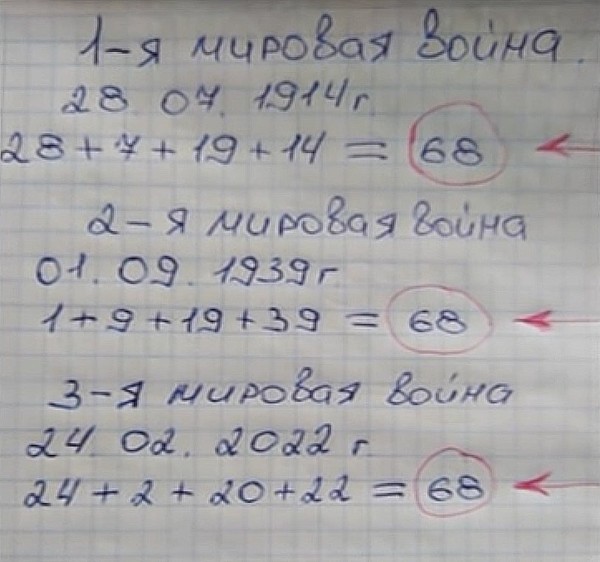 1-я мировая война.
28. 07. 1914 г.
28 + 7 + 19 + 14 = 68
2-я мировая война
01. 09. 1939 г
1 + 9 + 19 + 39 = 68
3-я мировая война
24. 02. 2022 г.
24 + 2 + 20 + 22 = 68